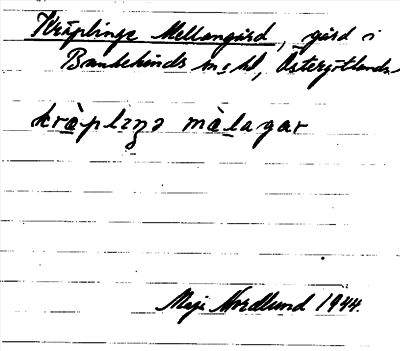 Kräplinge Mellangård, gård i
Bankekinds sn o hd, Östergötlands
kràplɩŋə mèlagar
Maj Nordlund 1944.